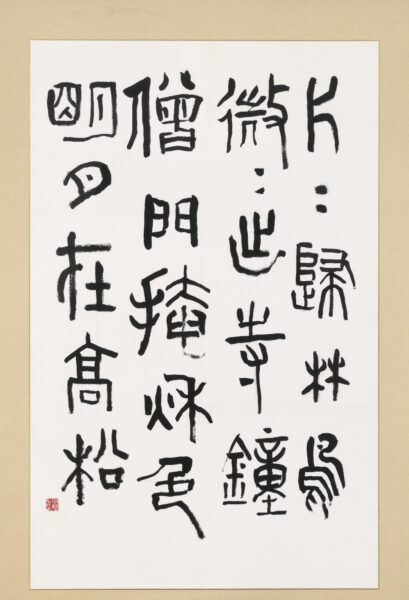 片〻歸林鳥
微〻出寺鐘
僧門掩秋色
明月在高松